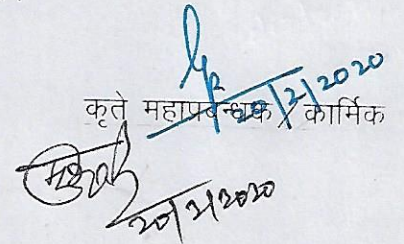 20/2/2020
कृते महाप्रबन्धक / कार्मिक
20/2/2020